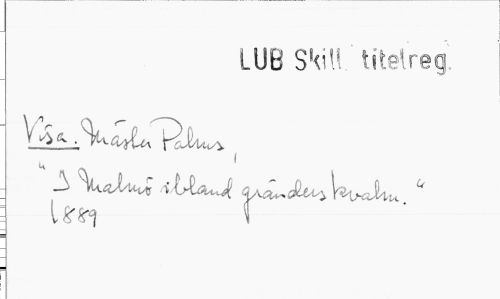 LUB Skill. titelreg.
Visa. Mäster Palms,
"I Malmö ibland gränders kvalm."
1889